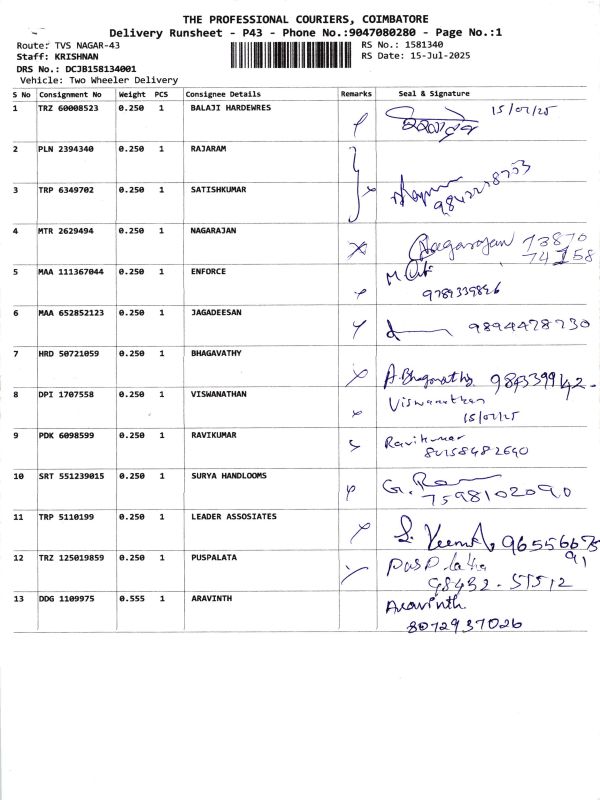 THE PROFESSIONAL COURIERS, COIMBATORE
Delivery Runsheet - P43 - Phone No.:9047080280 - Page No.:1
Route: TVS NAGAR-43 RS No.: 1581340
Staff: KRISHNAN RS Date: 15-Jul-2025
DRS No.: DCJB158134001
Vehicle: Two Wheeler Delivery
S No Consignment No Weight PCS Consignee Details Remarks Seal & Signature
1 TRZ 60008523 0.250 1 BALAJI HARDEWRES 15/07/25
2 PLN 2394340 0.250 1 RAJARAM
3 TRP 6349702 0.250 1 SATISHKUMAR
4 MTR 2629494 0.250 1 NAGARAJAN Nagarajan 73870
74158
5 MAA 111367044 0.250 1 ENFORCE
9789339826
6 MAA 652852123 0.250 1 JAGADEESAN 9894478730
7 HRD 50721059 0.250 1 BHAGAVATHY
A.Bhagavathy
8 DPI 1707558 0.250 1 VISWANATHAN Viswanathan
15/07/25
9 PDK 6098599 0.250 1 RAVIKUMAR Ravikumar
10 SRT 551239015 0.250 1 SURYA HANDLOOMS G. Ram
7598102090
11 TRP 5110199 0.250 1 LEADER ASSOSIATES
12 TRZ 125019859 0.250 1 PUSPALATA
98432-55512
13 DDG 1109975 0.555 1 ARAVINTH Aravinth
8072937026